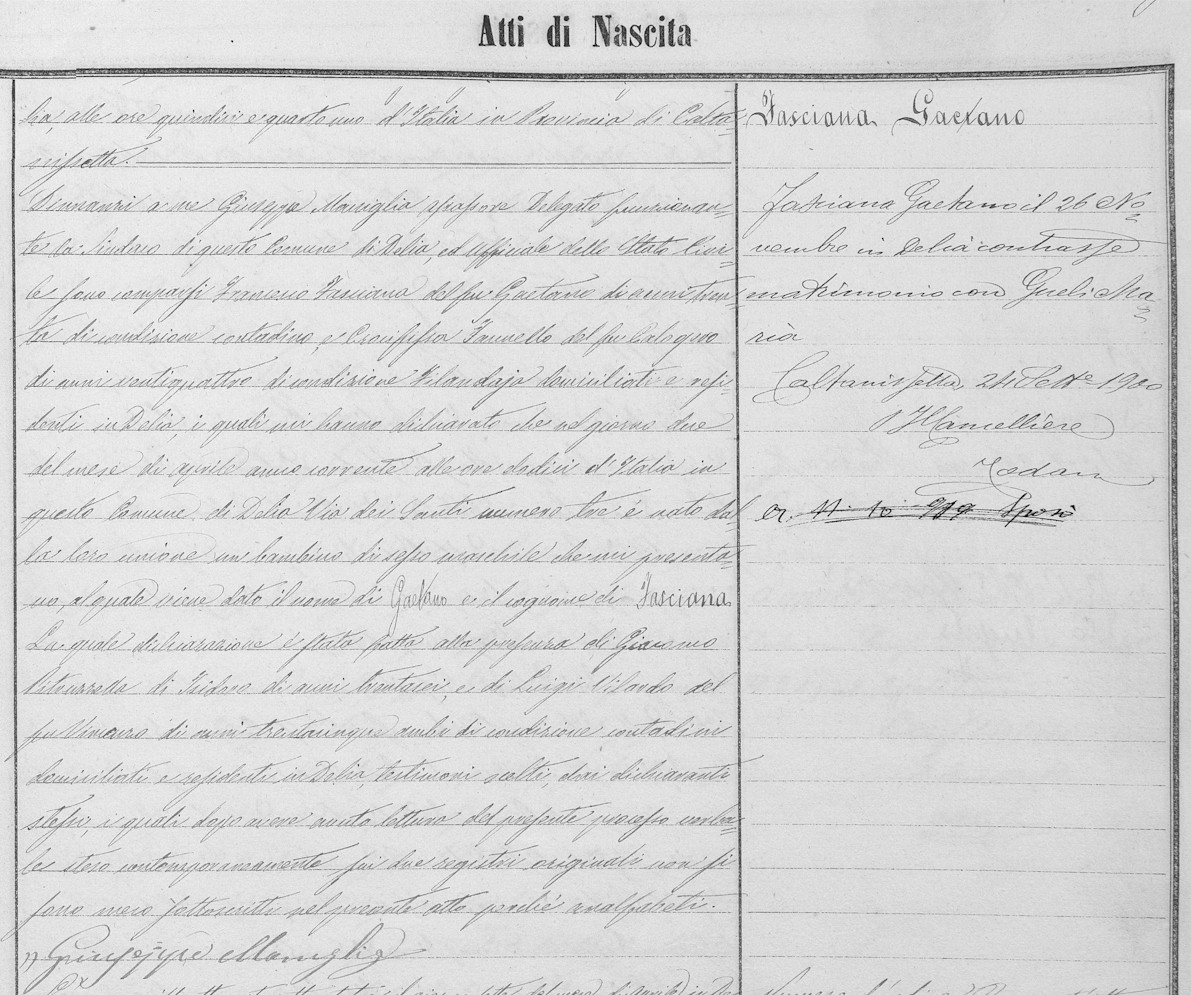 Atti di Nascita
alle ore quindici e quarto uno d'Italia in Provincia di Calta=
nissetta.
Dinnanzi a me Giuseppe Maniglia assessore Delegato funzionan=
te da Sindaco di questo Comune di Delia, ed uffiziale dello Stato Civi=
le sono comparsi Francesco Fasciana del fu Gaetano di anni tren=
ta di condizione contadino, e Crocifissa Iannello del fu Calogero
di anni ventiquattro di condizione Filandaja domiciliati e resi=
denti in Delia, i quali mi hanno dichiarato che nel giorno due
del mese di aprile anno corrente alle ore dodici d'Italia in
questo Comune di Delia Via dei Santi numero tre è nato dal
la loro unione un bambino di sesso maschile che mi presenta=
no, al quale viene dato il nome di Gaetano e il cognome di Fasciana
La quale dichiarazione è stata fatta alla presenza di Giacomo
di Isidoro di anni trentasei, e di Luigi Vilardo del
fu Vincenzo di anni trentacinque ambi di condizione contadini
domiciliati e residenti in Delia, testimoni scelti dai dichiaranti
stessi, i quali dopo avere avuto lettura del presente processo verba=
le steso contemporaneamente sui due registri originali non si
sono meco sottoscritti nel presente atto perché analfabeti.
Giuseppe Maniglia
Fasciana Gaetano
Fasciana Gaetano il 26 No=
vembre in Delia contrasse
matrimonio con Gueli Ma=
ria
Caltanissetta, 24 1900
Il Cancelliere